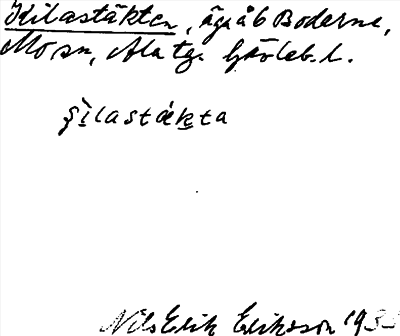 Kilastäkten, äga å 6 Boderne,
Mo sn, Ala tg. Gävleb. l.
s̀ìlastäkta
Nils Erik Eriksson 193